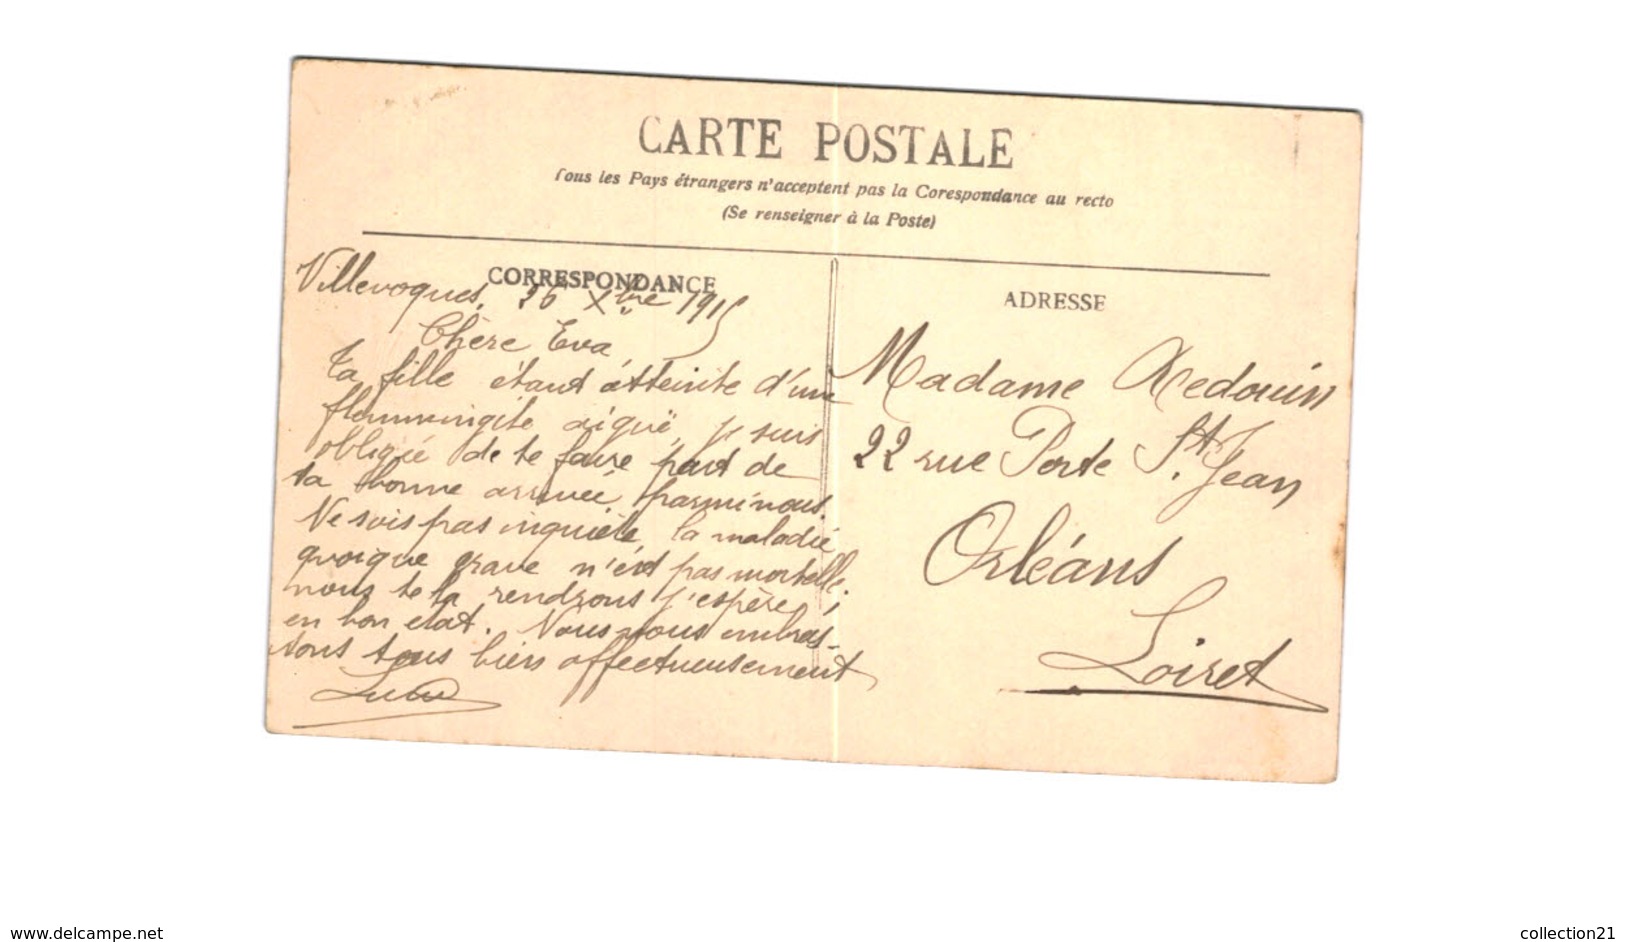 CARTE POSTALE
Tous les Pays étrangers n'acceptent pas la Corespondance au recto
(Se renseigner à la Poste)
CORRESPONDANCE
ADRESSE
Villevoques, 26 Xbre 1915
Chère Eva,
Ta fille étant atteinte d'une
flemmingite aiguë, je suis
obligée de te faire part de
ta bonne arrivée parmi nous.
Ne sois pas inquiète, la maladie
quoique grave n'est pas mortelle.
nous te la rendrons j'espère,
en bon état. Nous vous embras-
sons tous bien affectueusement
Madame Redouin
22 rue Porte St. Jean
Orléans
Loiret
www.delcampe.net
collection21